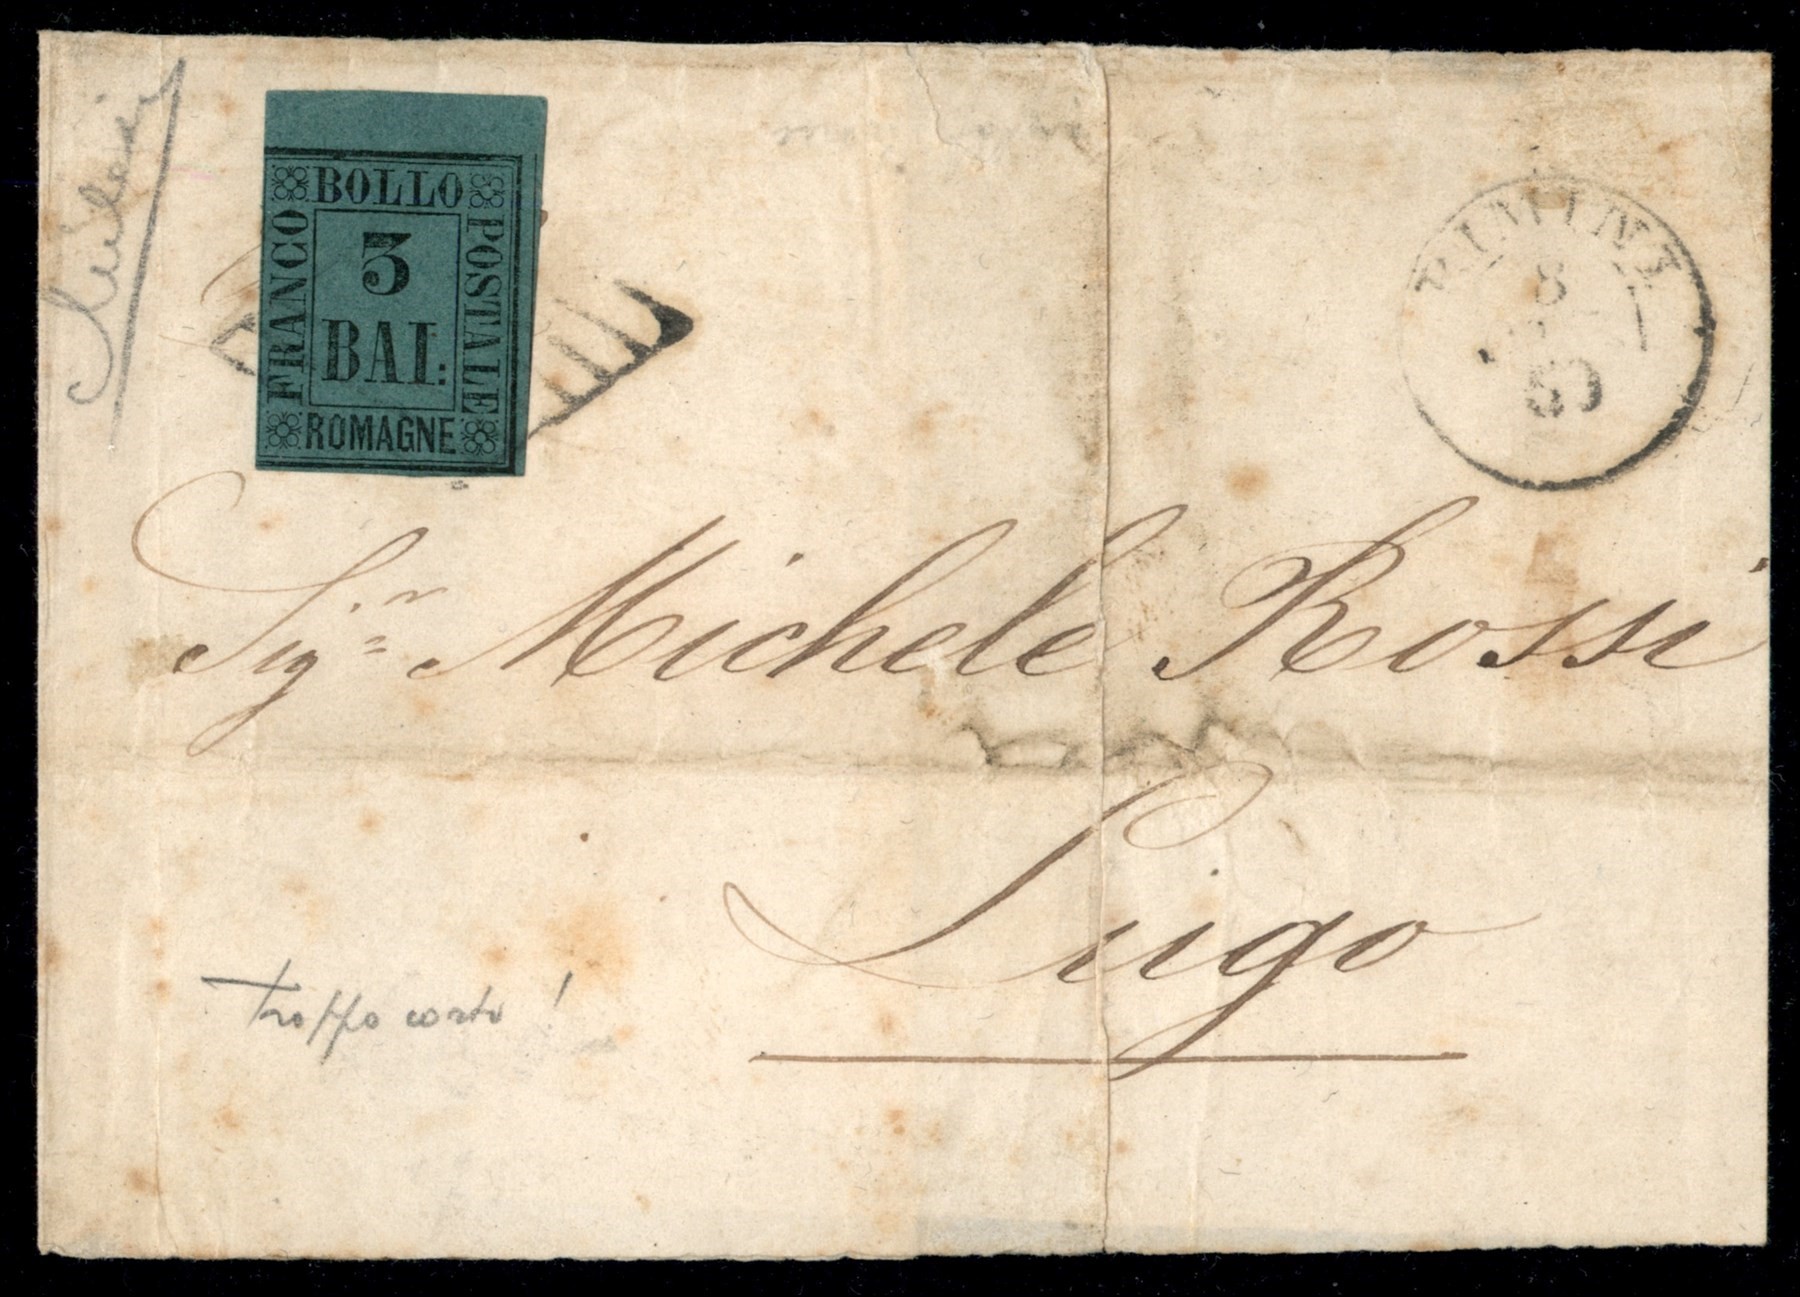 BOLLO
FRANCO
POSTALE
3
BAI:
ROMAGNE
RIMINI
8
60
Sigr. Michele Rossi
Lugo
troppo corto!